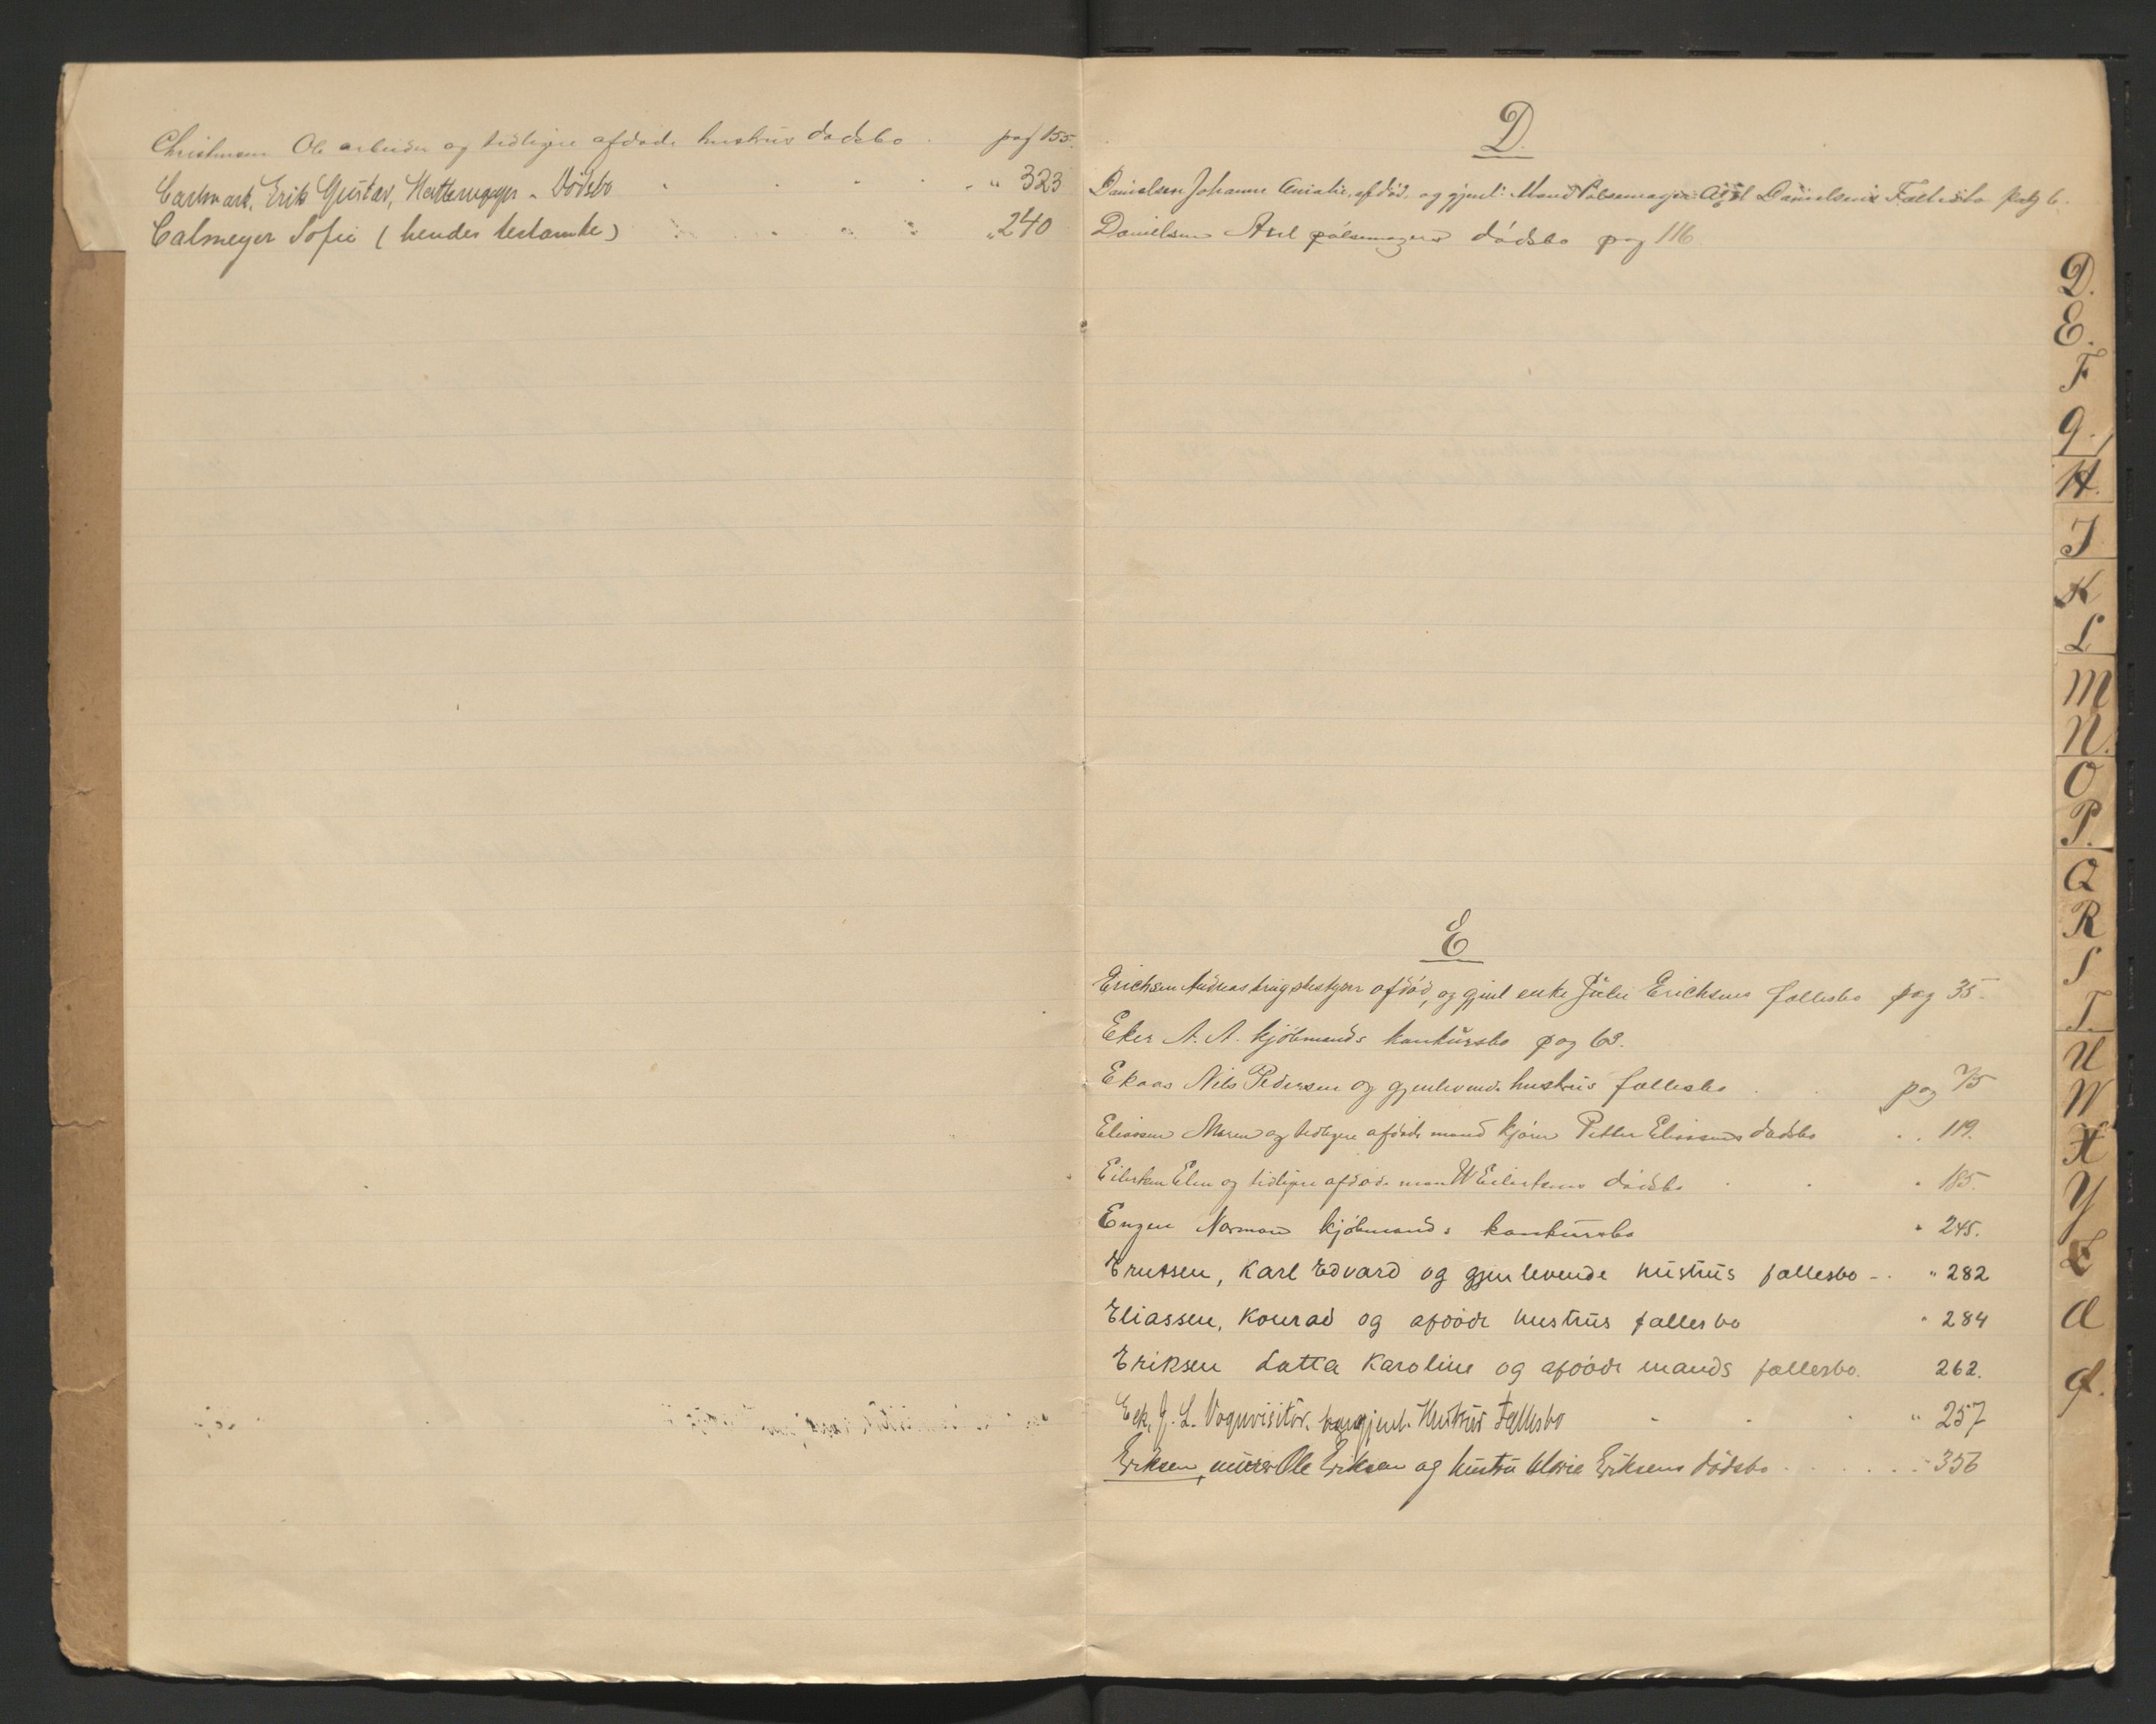 Christensen Ole arbeider og tidligere afdøde hustrus dødsbo . pag 155.
Carlmark, Erik Gustav, Hattemager - Dödsbo " 323
Calmeyer Sofie (hendes testamente) " 240
D.
Danielsen Johanne Amalie afdöd, og gjenl: Mand Pølsemager Axel Danielsens Fællesbo pag 6.
Danielsen Axel pølsemagers dødsbo pag 116
E
Erichsen Andreas brugsbestyrer afdöd, og gjenl enke Julie Erichsens fællesbo pag 35.
Eker A. A. kjöbmands konkursbo pag 63.
Ekaas Nils Pedersen og gjenlevende hustrus fællesbo . . pag 75
Eliassen Maren og tidligere afdøde mand Petter Eliassens dødsbo . . 119.
Eilertsen Elen og tidligere afdøde man W Eilertsens dödsbo " 185.
Engen Norman kjöbmands konkursbo " 245.
Erntsen, Karl Edvard og gjenlevende hustrus fællesbo - . " 282
Eliassen, Konrad og afdöde hustrus fællesbo " 284
Eriksen Lotta Karoline og afdöde mands fællesbo. 262.
Eek, J. L. Vognvisitör. gjenl. Hustrus Fællesbo " 257
Eriksen, murer Ole Eriksen og hustru Marie Eriksens dödsbo . . . . 356
D.
E.
F
G.
H.
I
K
L
M
N.
O
P.
Q
R
S
T.
U
W
X
Y
Z
Æ
Ø.